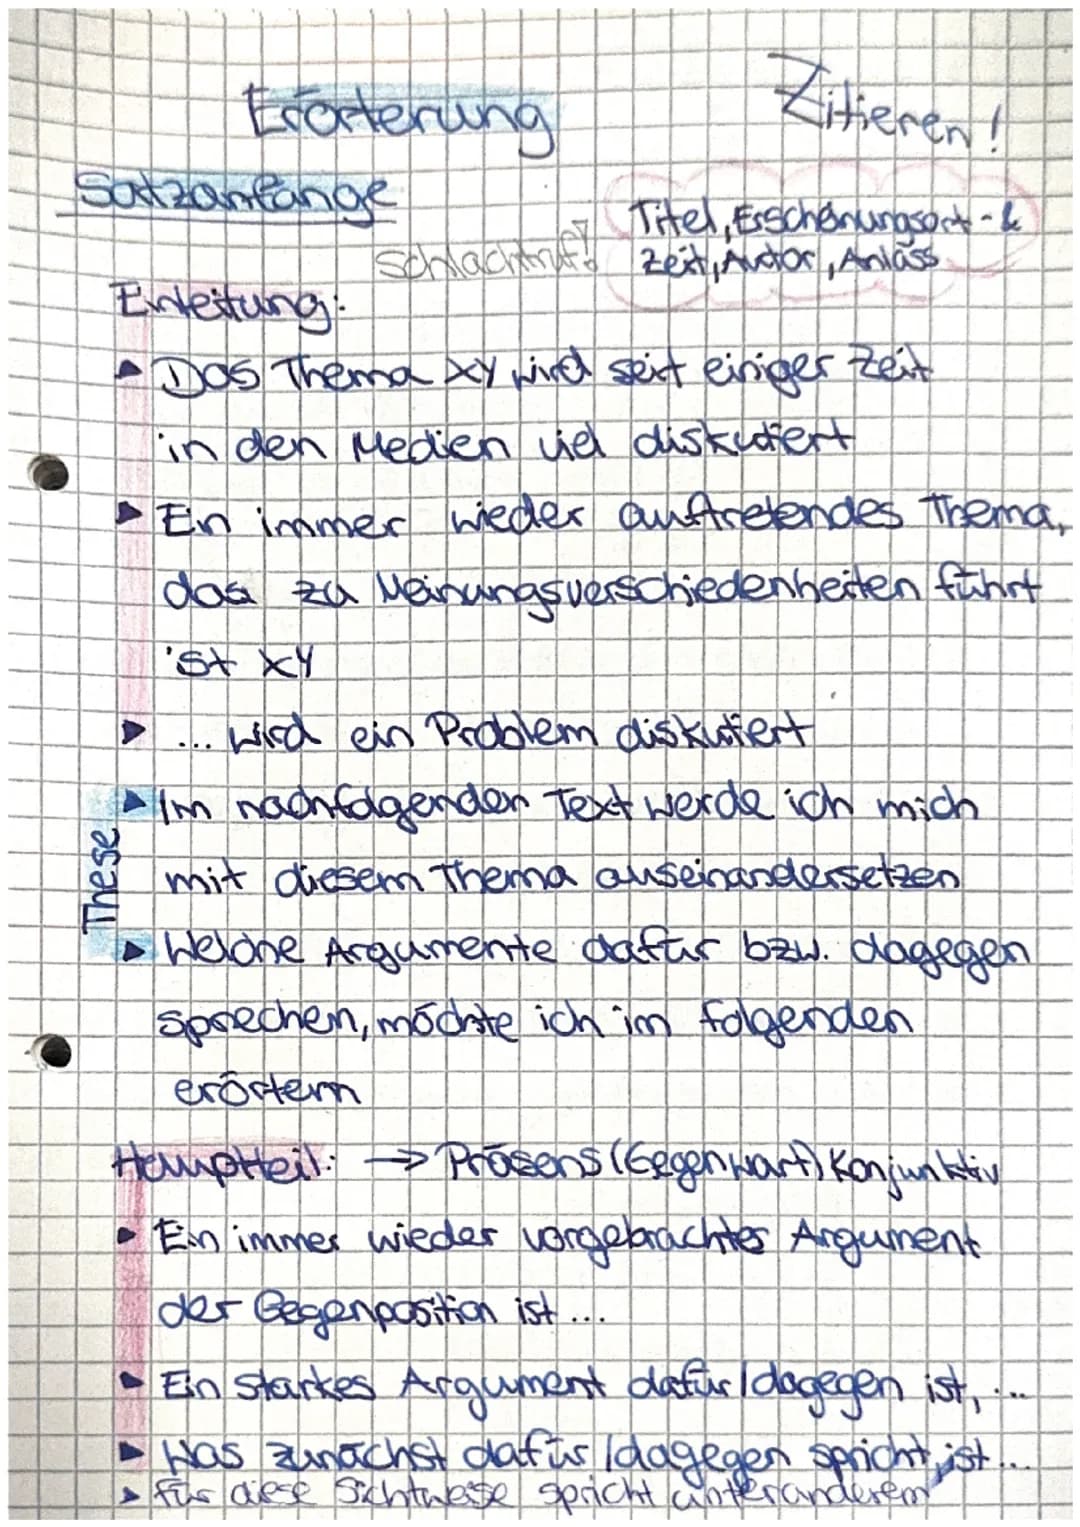 Erörterung
Zitieren!
Satzanfänge
Titel, Erscheinungsort - &
Schlachtruf!
Zeit, Autor, Anlass
Einleitung:
Das Thema XY wird seit einiger Zeit
in den Medien viel diskutiert
Ein immer wieder auftretendes Thema,
das zu Meinungsverschiedenheiten führt
ist XY
... wird ein Problem diskutiert
These
Im nachfolgenden Text werde ich mich
mit diesem Thema auseinandersetzen
Welche Argumente dafür bzw. dagegen
sprechen, möchte ich im folgenden
erörtern
Hauptteil: → Präsens (Gegenwart) Konjunktiv
Ein immer wieder vorgebrachtes Argument
der Gegenposition ist ...
Ein starkes Argument dafür/dagegen ist, ...
Was zunächst dafür/dagegen spricht, ist ...
für diese Sichtweise spricht unteranderem